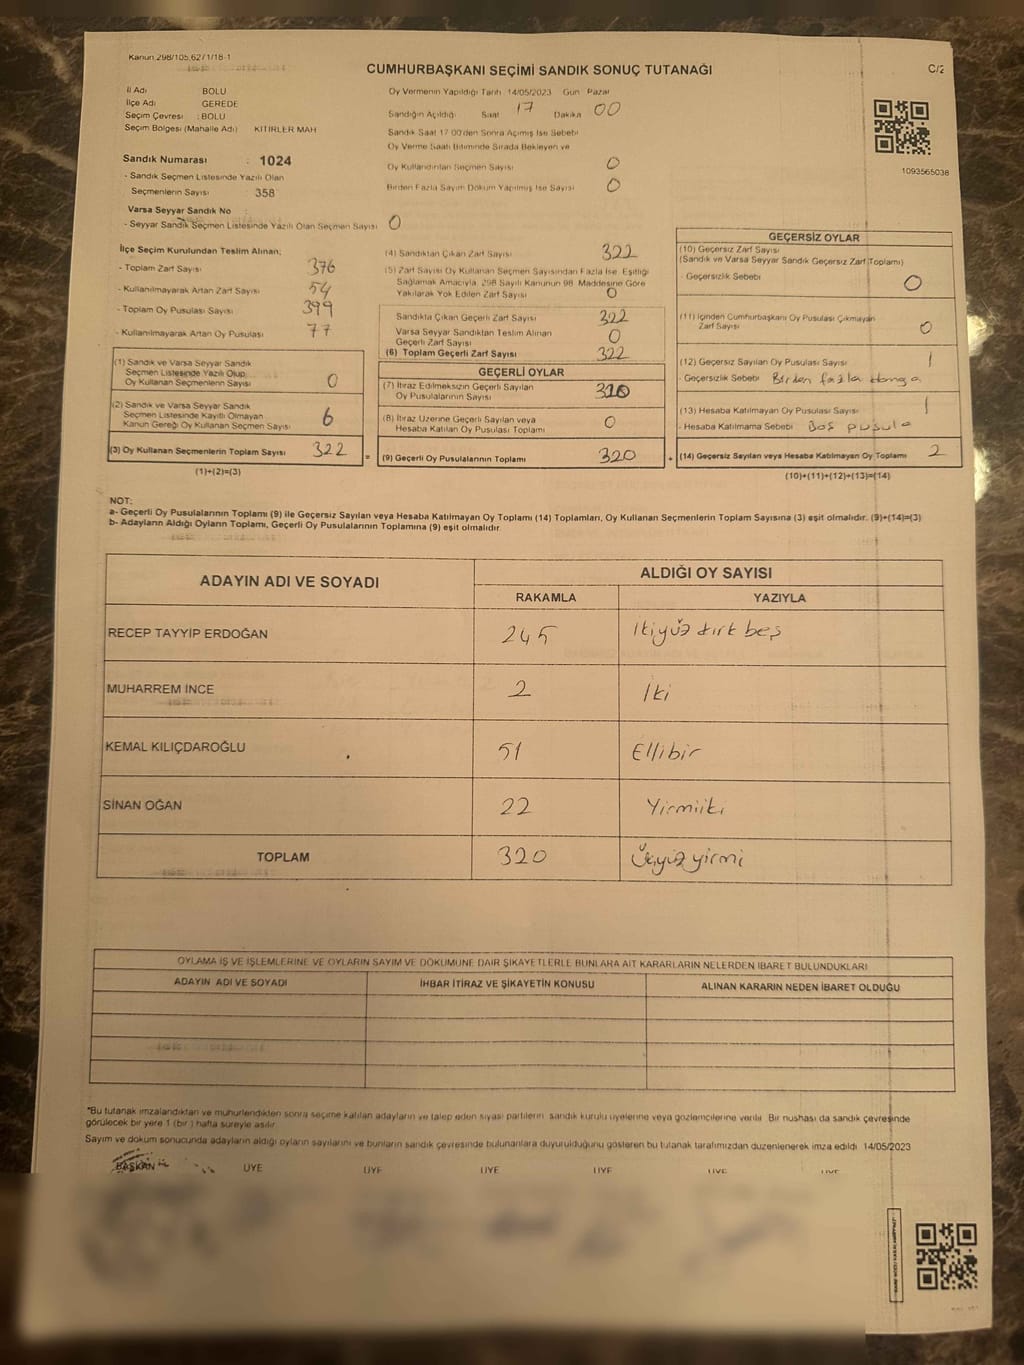 Kanun 298/105,6271/18-1
CUMHURBAŞKANI SEÇİMİ SANDIK SONUÇ TUTANAĞI
C/2
İl Adı BOLU
İlçe Adı GEREDE
Seçim Çevresi : BOLU
Seçim Bölgesi (Mahalle Adı) KİTİRLER MAH
Sandık Numarası : 1024
- Sandık Seçmen Listesinde Yazılı Olan
Seçmenlerin Sayısı 358
Varsa Seyyar Sandık No
- Seyyar Sandık Seçmen Listesinde Yazılı Olan Seçmen Sayısı 0
Oy Vermenin Yapıldığı Tarih 14/05/2023 Gün Pazar
Sandığın Açıldığı Saat 17 Dakika 00
Sandık Saat 17 00'den Sonra Açılmış İse Sebebi
Oy Verme Saati Bitiminde Sırada Bekleyen ve
Oy Kullandırılan Seçmen Sayısı 0
Birden Fazla Sayım Döküm Yapılmış İse Sayısı 0
1093565038
İlçe Seçim Kurulundan Teslim Alınan;
- Toplam Zarf Sayısı 376
- Kullanılmayarak Artan Zarf Sayısı 54
- Toplam Oy Pusulası Sayısı 399
- Kullanılmayarak Artan Oy Pusulası 77
(1) Sandık ve Varsa Seyyar Sandık
Seçmen Listesinde Yazılı Olup
Oy Kullanan Seçmenlerin Sayısı 0
(2) Sandık ve Varsa Seyyar Sandık
Seçmen Listesinde Kayıtlı Olmayan
Kanun Gereği Oy Kullanan Seçmen Sayısı 6
(3) Oy Kullanan Seçmenlerin Toplam Sayısı 322 =
(1)+(2)=(3)
(4) Sandıktan Çıkan Zarf Sayısı 322
(5) Zarf Sayısı Oy Kullanan Seçmen Sayısından Fazla İse, Eşitliği
Sağlamak Amacıyla, 298 Sayılı Kanunun 98. Maddesine Göre
Yakılarak Yok Edilen Zarf Sayısı 0
Sandıkta Çıkan Geçerli Zarf Sayısı 322
Varsa Seyyar Sandıktan Teslim Alınan
Geçerli Zarf Sayısı 0
(6) Toplam Geçerli Zarf Sayısı 322
GEÇERLİ OYLAR
(7) İtiraz Edilmeksizin Geçerli Sayılan
Oy Pusulalarının Sayısı 320
(8) İtiraz Üzerine Geçerli Sayılan veya
Hesaba Katılan Oy Pusulası Toplamı 0
(9) Geçerli Oy Pusulalarının Toplamı 320 +
GEÇERSİZ OYLAR
(10) Geçersiz Zarf Sayısı
(Sandık ve Varsa Seyyar Sandık Geçersiz Zarf Toplamı)
- Geçersizlik Sebebi 0
(11) İçinden Cumhurbaşkanı Oy Pusulası Çıkmayan
Zarf Sayısı 0
(12) Geçersiz Sayılan Oy Pusulası Sayısı 1
- Geçersizlik Sebebi Birden fazla damga
(13) Hesaba Katılmayan Oy Pusulası Sayısı 1
- Hesaba Katılmama Sebebi Boş pusula
(14) Geçersiz Sayılan veya Hesaba Katılmayan Oy Toplamı 2
(10)+(11)+(12)+(13)=(14)
NOT:
a- Geçerli Oy Pusulalarının Toplamı (9) ile Geçersiz Sayılan veya Hesaba Katılmayan Oy Toplamı (14) Toplamları, Oy Kullanan Seçmenlerin Toplam Sayısına (3) eşit olmalıdır. (9)+(14)=(3)
b- Adayların Aldığı Oyların Toplamı, Geçerli Oy Pusulalarının Toplamına (9) eşit olmalıdır.
ADAYIN ADI VE SOYADI ALDIĞI OY SAYISI
RAKAMLA YAZIYLA
RECEP TAYYİP ERDOĞAN 245 İkiyüz kırk beş
MUHARREM İNCE 2 İki
KEMAL KILIÇDAROĞLU 51 Ellibir
SİNAN OĞAN 22 Yirmiiki
TOPLAM 320 Üçyüz yirmi
OYLAMA İŞ VE İŞLEMLERİNE VE OYLARIN SAYIM VE DÖKÜMÜNE DAİR ŞİKAYETLERLE BUNLARA AİT KARARLARIN NELERDEN İBARET BULUNDUKLARI
ADAYIN ADI VE SOYADI İHBAR İTİRAZ VE ŞİKAYETİN KONUSU ALINAN KARARIN NEDEN İBARET OLDUĞU
*Bu tutanak imzalandıktan ve mühürlendikten sonra seçime katılan adayların ve talep eden siyasi partilerin sandık kurulu üyelerine veya gözlemcilerine verilir. Bir nüshası da sandık çevresinde
görülecek bir yere 1 (bir) hafta süreyle asılır.
Sayım ve döküm sonucunda adayların aldığı oyların sayılarını ve bunların sandık çevresinde bulunanlara duyurulduğunu gösteren bu tutanak tarafımızdan düzenlenerek imza edildi. 14/05/2023
BAŞKAN ÜYE ÜYE ÜYE ÜYE ÜYE ÜYE